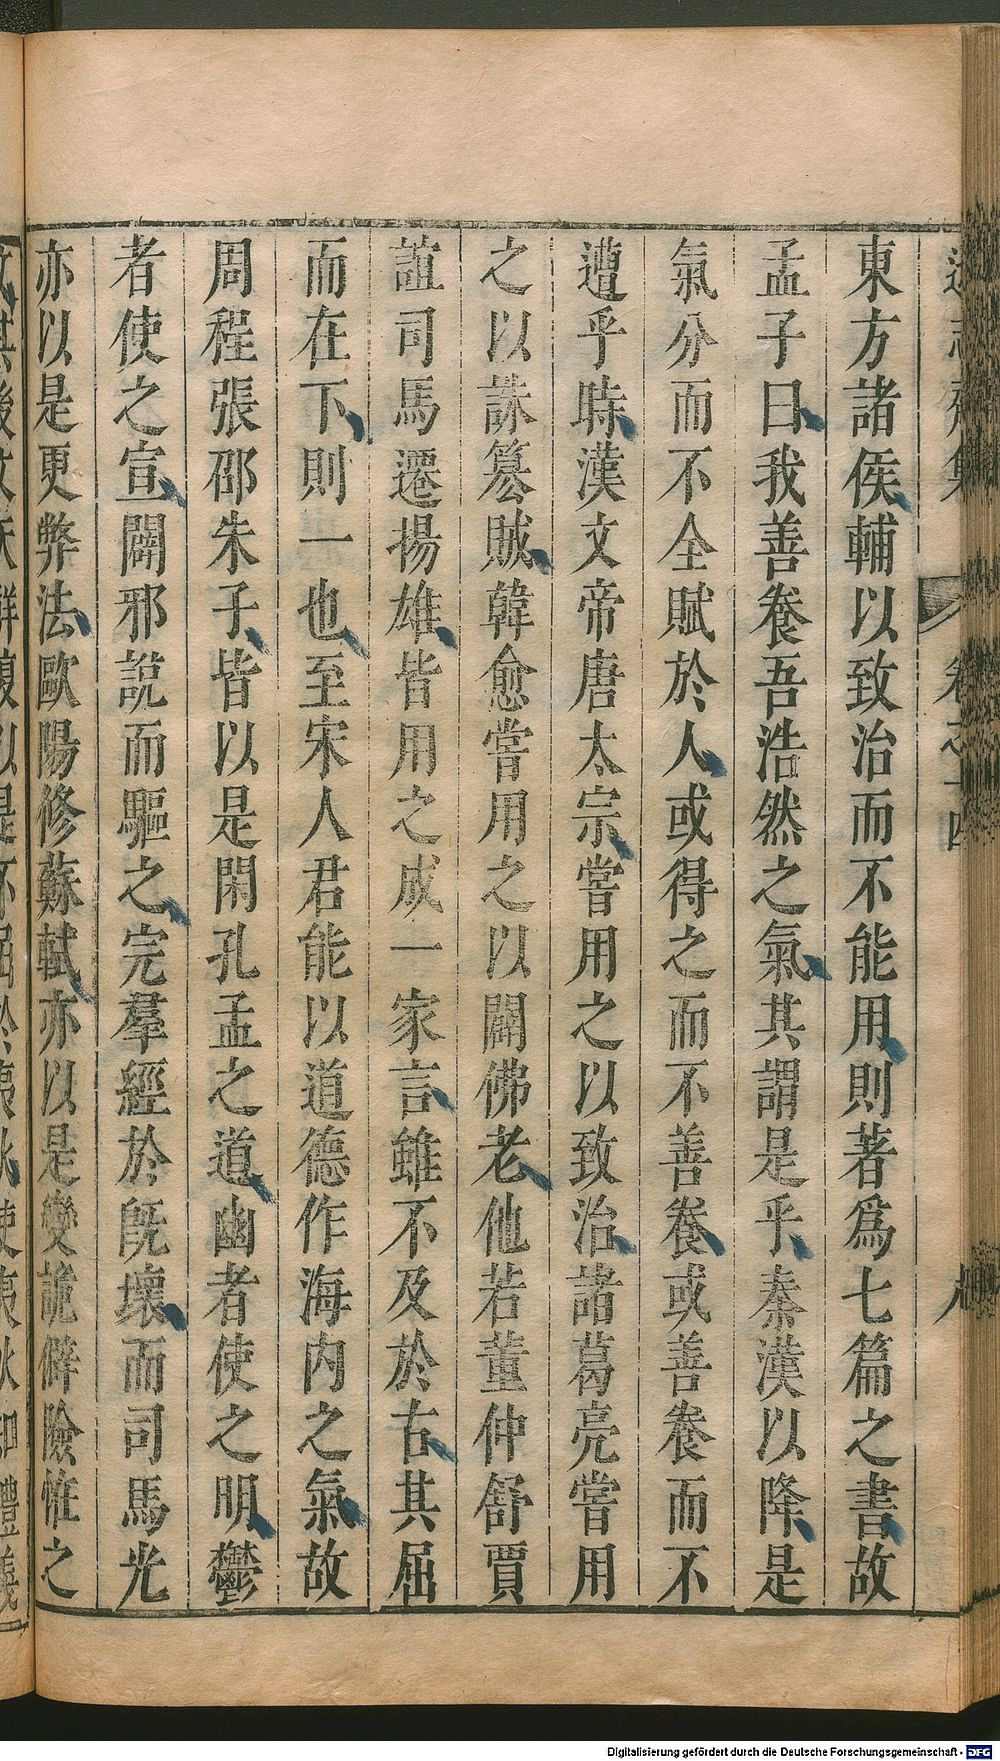 東方諸侯輔以致治而不能用則著爲七篇之書故
孟子曰我善養吾浩然之氣其謂是乎秦漢以降是
氣分而不全賦於人或得之而不善養或善養而不
遭乎時漢文帝唐太宗嘗用之以致治諸葛亮嘗用
之以誅篡賊韓愈嘗用之以闢佛老他若董仲舒賈
誼司馬遷揚雄皆用之成一家言雖不及於古其屈
而在下則一也至宋人君能以道德作海内之氣故
周程張邵朱子皆以是閑孔孟之道幽者使之明鬱
者使之宣闢邪說而驅之完羣經於旣壞而司馬光
亦以是更弊法歐陽修蘇軾亦以是變詭僻險怪之
卷之十四
Digitalisierung gefördert durch die Deutsche Forschungsgemeinschaft - DFG